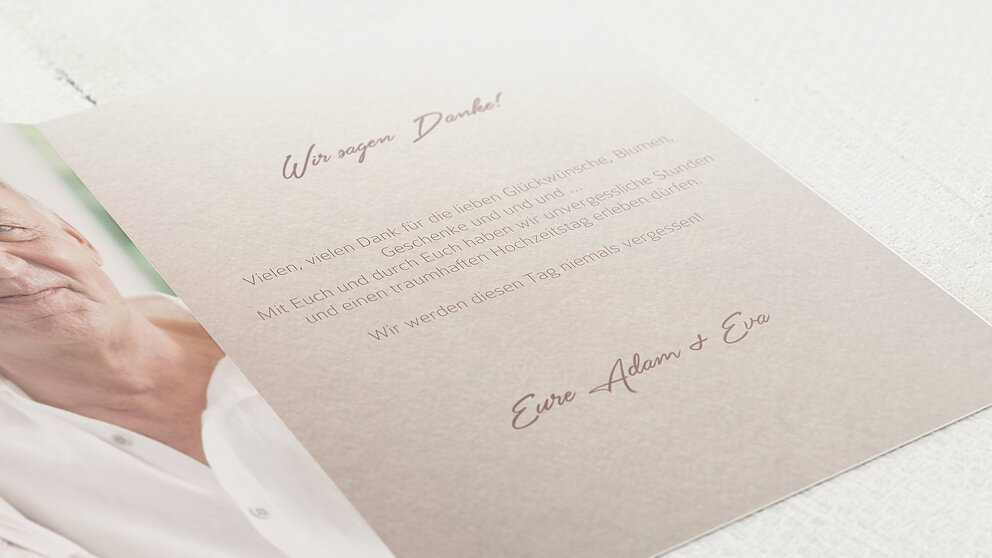 Wir sagen Danke!
Vielen, vielen Dank für die lieben Glückwünsche, Blumen,
Geschenke und und und ...
Mit Euch und durch Euch haben wir unvergessliche Stunden
und einen traumhaften Hochzeitstag erleben dürfen.
Wir werden diesen Tag niemals vergessen!
Eure Adam & Eva